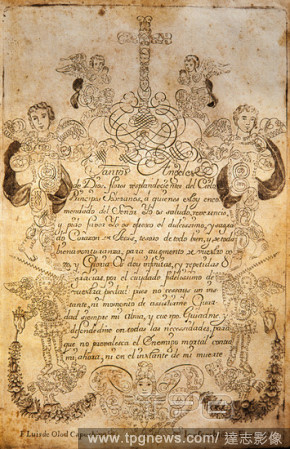 Santos Angeles
de Dios, Luses resplandecientes del Cielo
Principes Soberanos, a quienes estoy enco
mendado del Señor. Yo os saludo, reverencio,
y para haver os ofresco el dulcissimo, y sagrado
Corazon de Jesus, tesoro de todo bien, y de todas
bienaventuranzas, para augmento de vuestro go
zo, y Gloria. Os doy infinitas, y repetidas
gracias, por el cuidado fidelissimo de
vuestra piedad: pues no cessays un mo
mento, ni momento de assistirme. Guar
dad siempre mi Alma, y cuerpo. Guiadme, y
defendedme en todas las necessidades, para
que no prevalesca el Enemigo mortal contra
mi, ahora, ni en el instante de mi muerte
F. Luis de Olod Capuchino
www.tpgnews.com / 達志影像